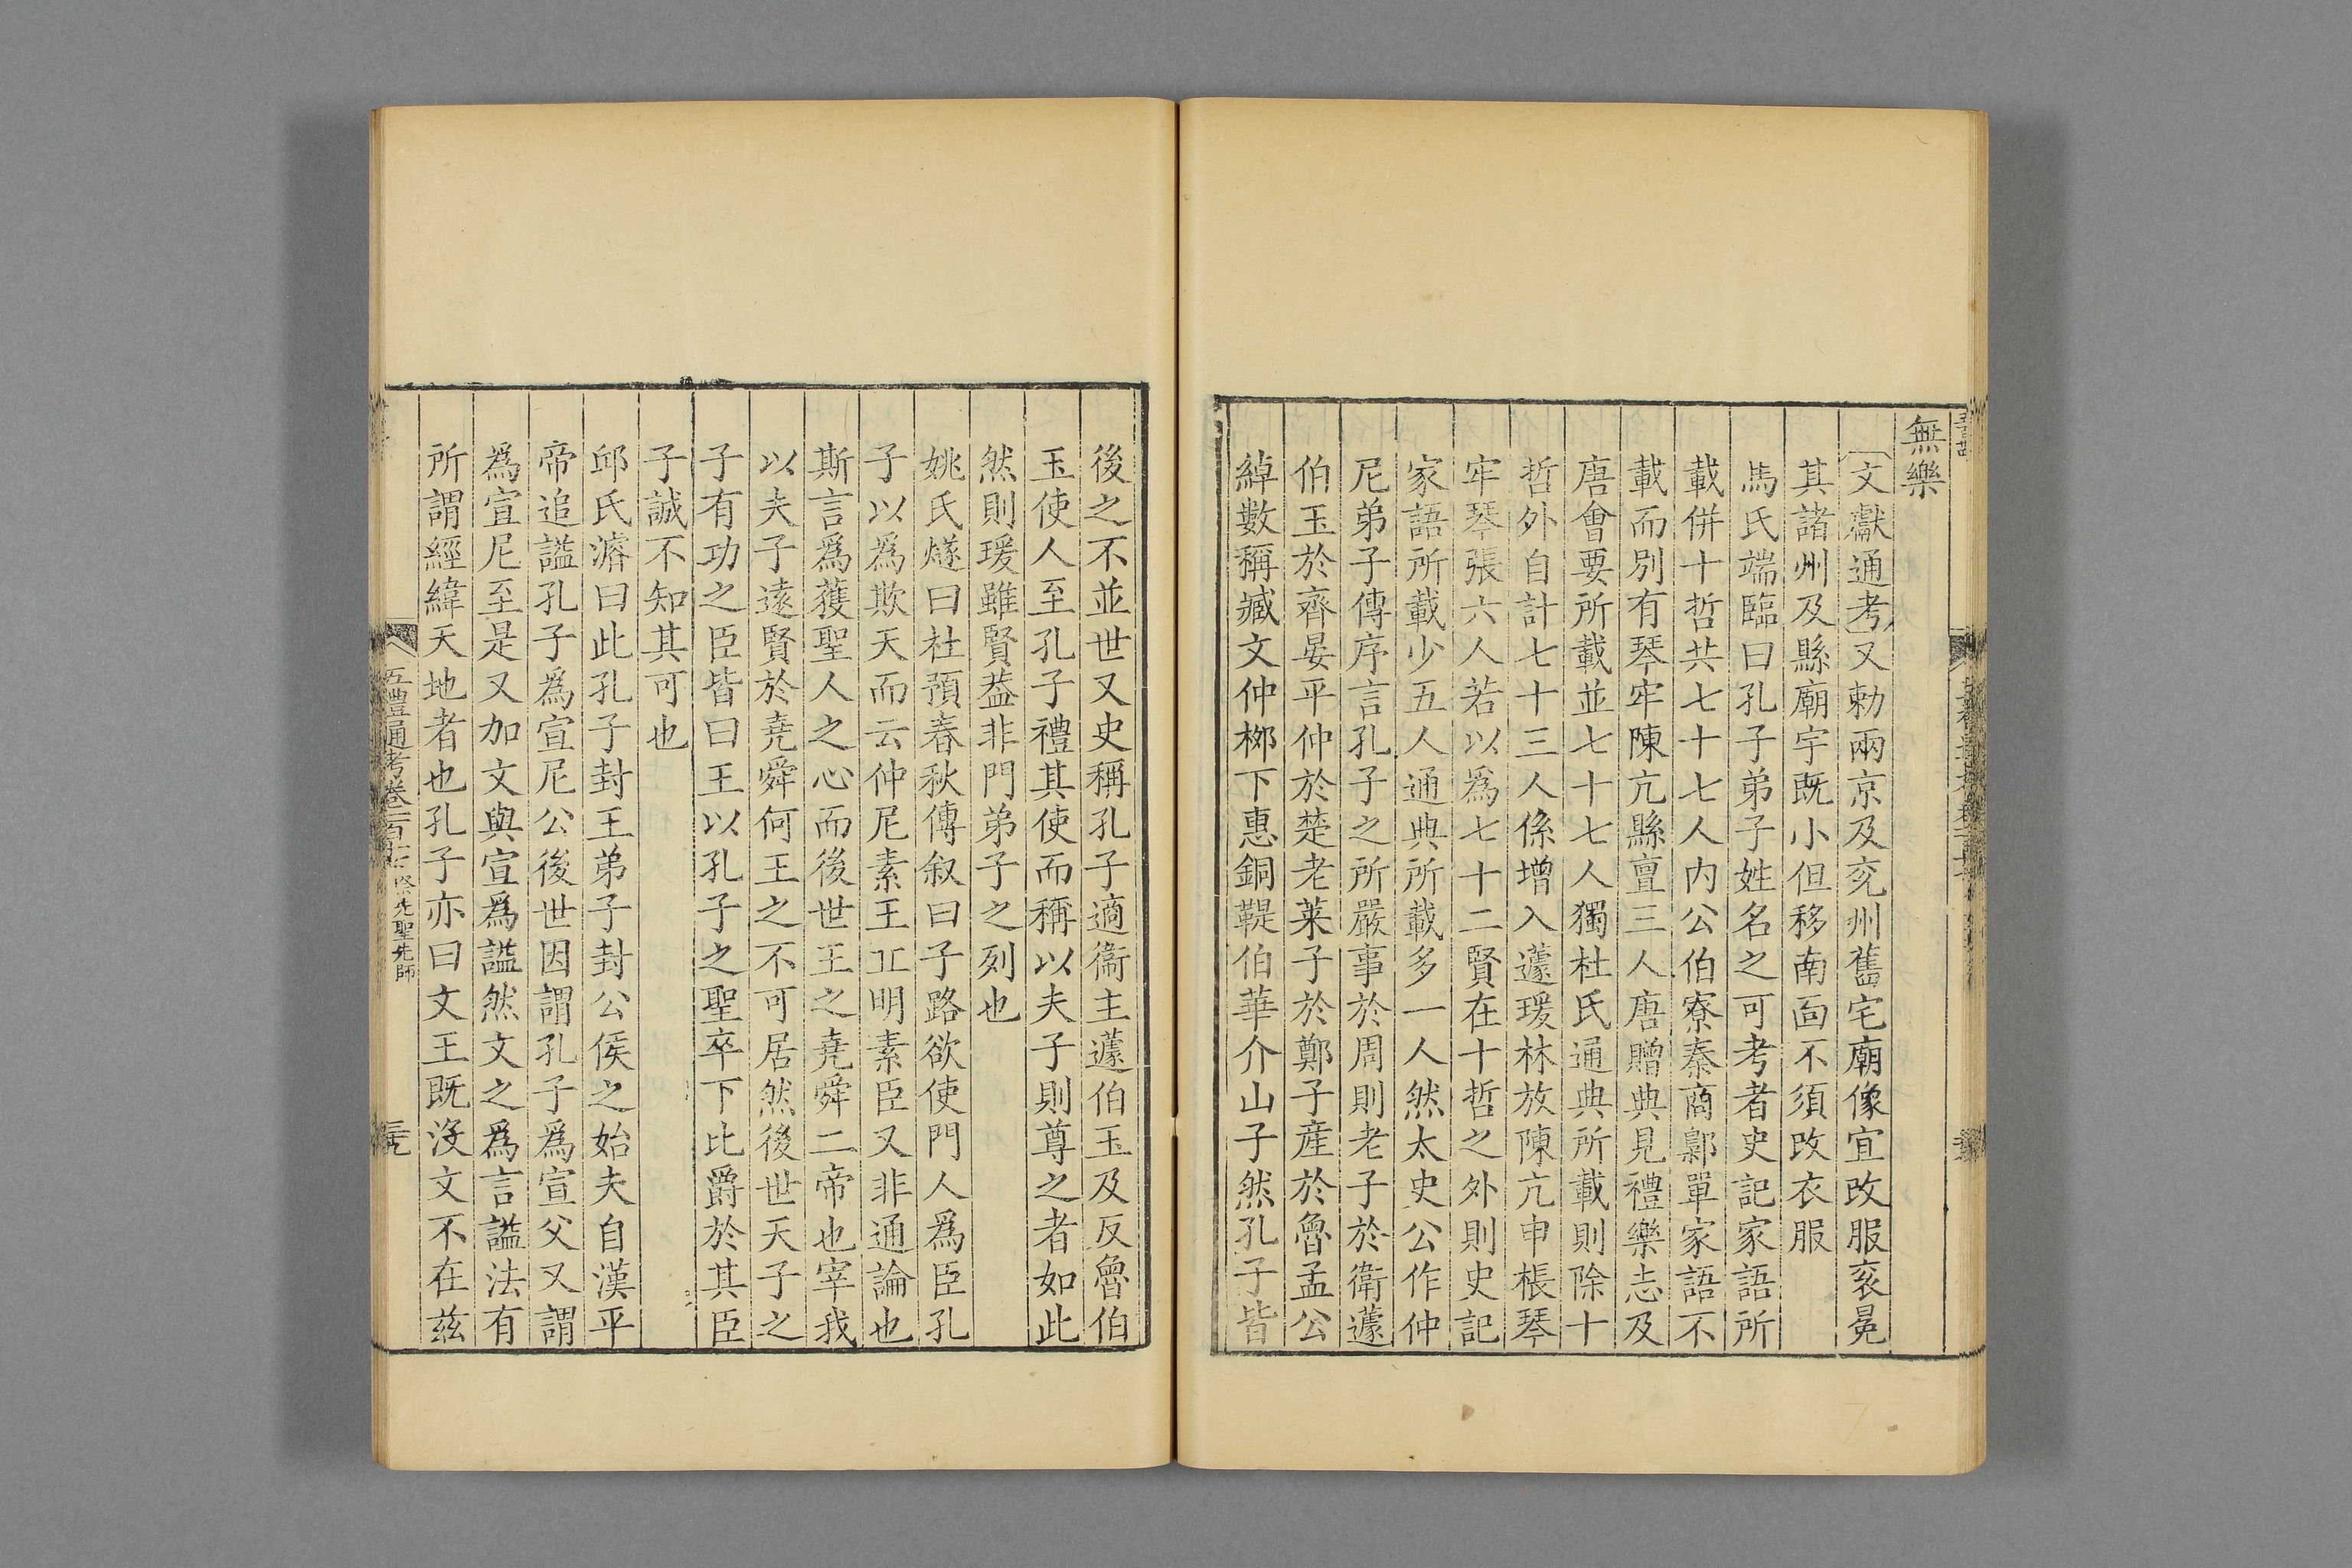 無樂
文獻通考又勅兩京及兖州舊宅廟像宜改服衮冕
其諸州及縣廟宇既小但移南面不須改衣服
馬氏端臨曰孔子弟子姓名之可考者史記家語所
載併十哲共七十七人内公伯寮秦商鄡單家語不
載而別有琴牢陳亢縣亶三人唐贈典見禮樂志及
唐會要所載並七十七人獨杜氏通典所載則除十
哲外自計七十三人係增入蘧瑗林放陳亢申棖琴
牢琴張六人若以為七十二賢在十哲之外則史記
家語所載少五人通典所載多一人然太史公作仲
尼弟子傳序言孔子之所嚴事於周則老子於衛蘧
伯玉於齊晏平仲於楚老萊子於鄭子産於魯孟公
綽數稱臧文仲栁下惠銅鞮伯華介山子然孔子皆
後之不並世又史稱孔子適衞主蘧伯玉及反魯伯
玉使人至孔子禮其使而稱以夫子則尊之者如此
然則瑗雖賢葢非門弟子之列也
姚氏燧曰杜預春秋傳叙曰子路欲使門人爲臣孔
子以爲欺天而云仲尼素王丘明素臣又非通論也
斯言爲獲聖人之心而後世王之堯舜二帝也宰我
以夫子遠賢於堯舜何王之不可居然後世天子之
子有功之臣皆曰王以孔子之聖卒下比爵於其臣
子誠不知其可也
邱氏濬曰此孔子封王弟子封公侯之始夫自漢平
帝追諡孔子爲宣尼公後世因謂孔子爲宣父又謂
爲宣尼至是又加文與宣爲諡然文之爲言諡法有
所謂經緯天地者也孔子亦曰文王既沒文不在兹
五禮通考卷一百十七 祭先聖先師